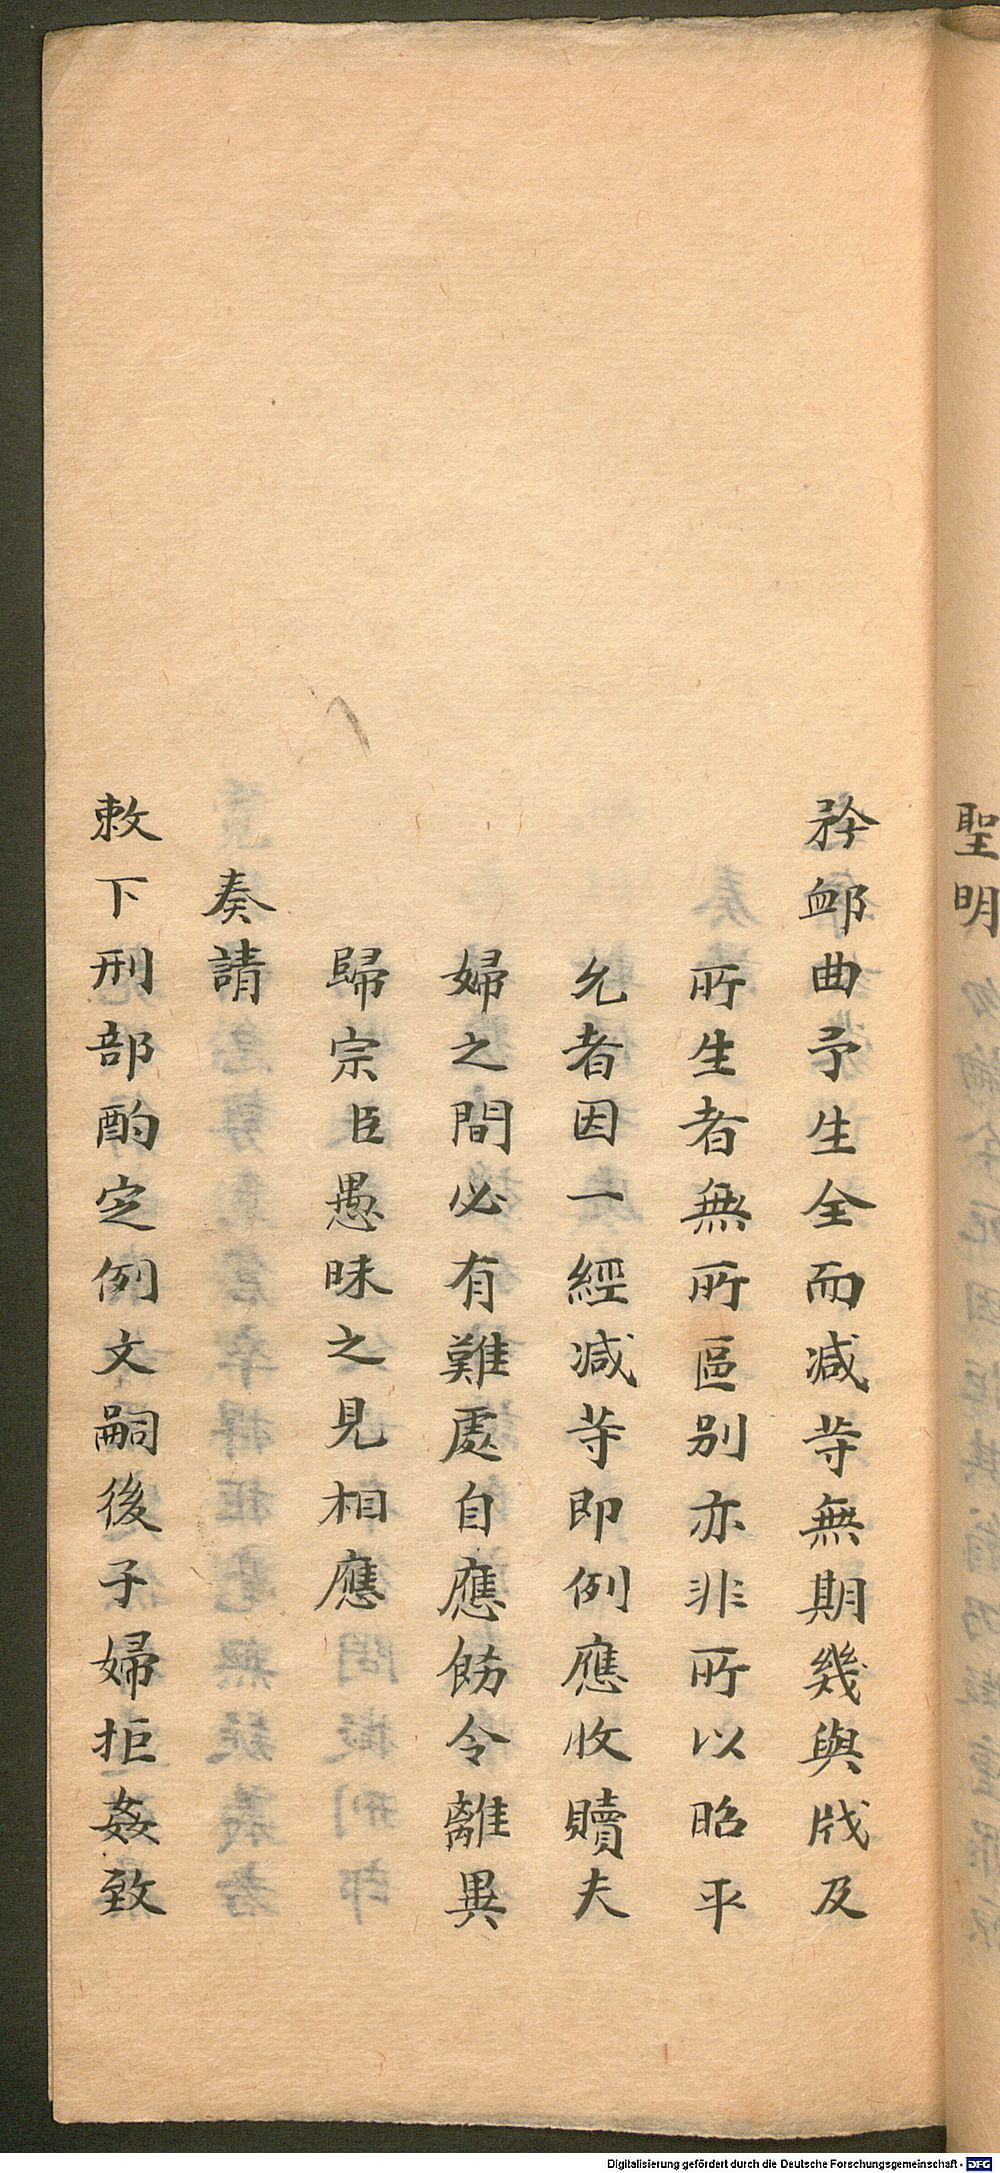 聖明
矜卹曲予生全而减䓁無期幾與戕及
所生者無所區别亦非所以昭平
允者因一經减䓁即例應收贖夫
婦之間必有難處自應飭令離異
歸宗臣愚昧之見相應
奏請
敕下刑部酌定例文嗣後子婦拒姦致
Digitalisierung gefördert durch die Deutsche Forschungsgemeinschaft - DFG